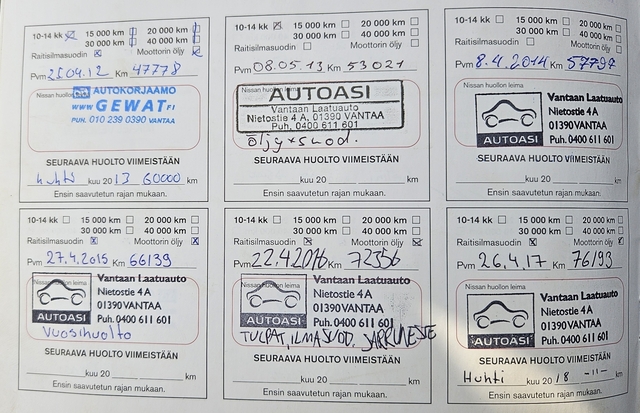 10-14 kk ☒ 15 000 km ☐ 20 000 km ☐
30 000 km ☐ 40 000 km ☐
Raitisilmasuodin ☒ Moottorin öljy ☒
Pvm 25.04.12 Km 47778
Nissan huollon leima
AUTOKORJAAMO
www.GEWAT.FI
PUH. 010 239 0390 VANTAA
SEURAAVA HUOLTO VIIMEISTÄÄN
huhti kuu 2013 60000 km
Ensin saavutetun rajan mukaan.
10-14 kk ☒ 15 000 km ☐ 20 000 km ☐
30 000 km ☐ 40 000 km ☐
Raitisilmasuodin ☐ Moottorin öljy ☐
Pvm 08.05.13 Km 53021
Nissan huollon leima
AUTOASI
Vantaan Laatuauto
Nietostie 4 A, 01390 VANTAA
Puh. 0400 611 601
öljy + suod.
SEURAAVA HUOLTO VIIMEISTÄÄN
kuu 20 km
Ensin saavutetun rajan mukaan.
10-14 kk ☐ 15 000 km ☐ 20 000 km ☐
30 000 km ☐ 40 000 km ☐
Raitisilmasuodin ☐ Moottorin öljy ☐
Pvm 8.4.2014 Km 57797
Nissan huollon leima
AUTOASI
Vantaan Laatuauto
Nietostie 4 A
01390 VANTAA
Puh. 0400 611 601
SEURAAVA HUOLTO VIIMEISTÄÄN
kuu 20 km
Ensin saavutetun rajan mukaan.
10-14 kk ☐ 15 000 km ☐ 20 000 km ☐
30 000 km ☐ 40 000 km ☐
Raitisilmasuodin ☒ Moottorin öljy ☒
Pvm 27.4.2015 Km 66139
Nissan huollon leima
AUTOASI
Vantaan Laatuauto
Nietostie 4 A
01390 VANTAA
Puh. 0400 611 601
Vuosihuolto
SEURAAVA HUOLTO VIIMEISTÄÄN
kuu 20 km
Ensin saavutetun rajan mukaan.
10-14 kk ☐ 15 000 km ☐ 20 000 km ☐
30 000 km ☐ 40 000 km ☐
Raitisilmasuodin ☒ Moottorin öljy ☒
Pvm 22.4.2016 Km 72356
Nissan huollon leima
AUTOASI
Vantaan Laatuauto
Nietostie 4 A
01390 VANTAA
Puh. 0400 611 601
TULPAT, ILMASUOD, JARRUNESTE
SEURAAVA HUOLTO VIIMEISTÄÄN
kuu 20 km
Ensin saavutetun rajan mukaan.
10-14 kk ☐ 15 000 km ☐ 20 000 km ☐
30 000 km ☐ 40 000 km ☐
Raitisilmasuodin ☒ Moottorin öljy ☒
Pvm 26.4.17 Km 76193
Nissan huollon leima
AUTOASI
Vantaan Laatuauto
Nietostie 4 A
01390 VANTAA
Puh. 0400 611 601
SEURAAVA HUOLTO VIIMEISTÄÄN
Huhti kuu 2018 -11- km
Ensin saavutetun rajan mukaan.